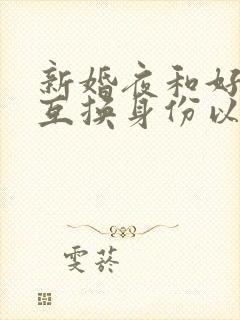 新婚夜和好
互换身份以
雯菸